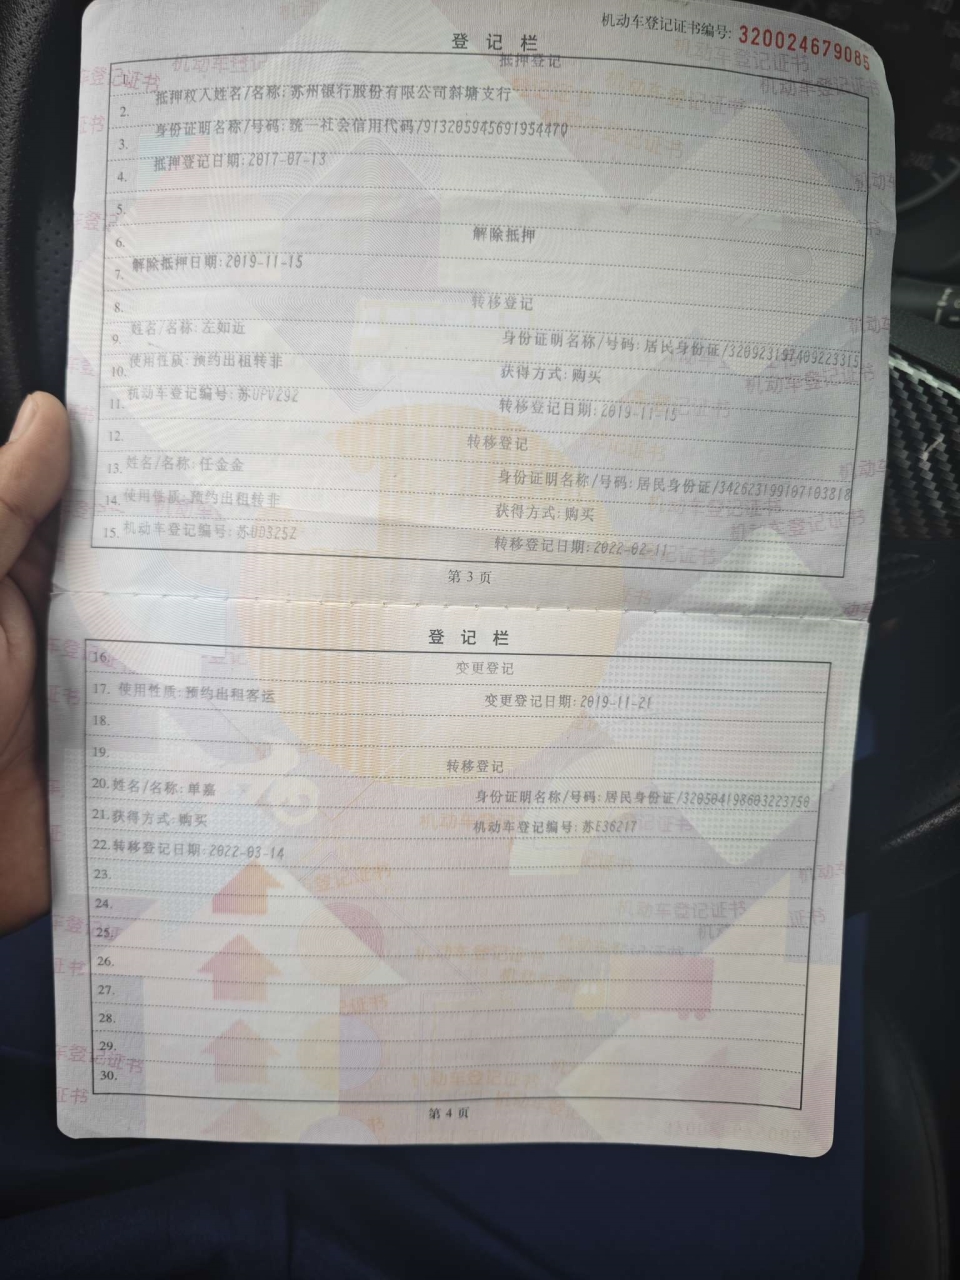 机动车登记证书编号: 320024679085
登 记 栏
1. 抵押登记
2. 抵押权人姓名/名称:苏州银行股份有限公司斜塘支行
3. 身份证明名称/号码:统一社会信用代码/91320594569195447Q
4. 抵押登记日期:2017-07-13
5.
6. 解除抵押
7. 解除抵押日期:2019-11-15
8. 转移登记
9. 姓名/名称:左如近 身份证明名称/号码:居民身份证/320923197409223315
10. 使用性质:预约出租转非 获得方式:购买
11. 机动车登记编号:苏UPV29Z 转移登记日期:2019-11-15
12. 转移登记
13. 姓名/名称:任金金 身份证明名称/号码:居民身份证/342623199107103818
14. 使用性质:预约出租转非 获得方式:购买
15. 机动车登记编号:苏UD325Z 转移登记日期:2022-02-11
第 3 页
登 记 栏
16. 变更登记
17. 使用性质:预约出租客运 变更登记日期:2019-11-21
18.
19. 转移登记
20. 姓名/名称:单嘉 身份证明名称/号码:居民身份证/320504198603223750
21. 获得方式:购买 机动车登记编号:苏E36217
22. 转移登记日期:2022-03-14
23.
24.
25.
26.
27.
28.
29.
30.
第 4 页